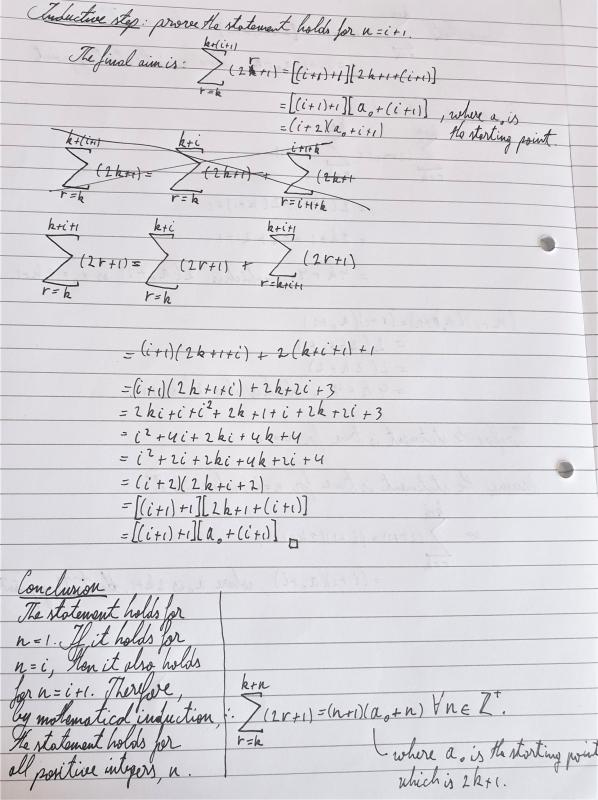 Inductive step: prove the statement holds for n=i+1.
The final aim is: ∑_{r=k}^{k+(i+1)} (2r+1) = [(i+1)+1][2k+1+(i+1)]
= [(i+1)+1][a₀+(i+1)], where a₀ is
= (i+2)(a₀+i+1) the starting point.
∑_{r=k}^{k+(i+1)} (2k+1) = ∑_{r=k}^{k+i} (2k+1) + ∑_{r=i+1+k}^{i+1+k} (2k+1
∑_{r=k}^{k+i+1} (2r+1) = ∑_{r=k}^{k+i} (2r+1) + ∑_{r=k+i+1}^{k+i+1} (2r+1)
= (i+1)(2k+1+i) + 2(k+i+1)+1
= (i+1)(2k+1+i) + 2k+2i+3
= 2ki+i+i²+2k+1+i+2k+2i+3
= i²+4i+2ki+4k+4
= i²+2i+2ki+4k+2i+4
= (i+2)(2k+i+2)
= [(i+1)+1][2k+1+(i+1)]
= [(i+1)+1][a₀+(i+1)] □
Conclusion
The statement holds for
n=1. If it holds for
n=i, then it also holds
for n=i+1. Therefore,
by mathematical induction,
the statement holds for
all positive integers, n.
∴ ∑_{r=k}^{k+n} (2r+1) = (n+1)(a₀+n) ∀ n ∈ ℤ⁺.
where a₀ is the starting point
which is 2k+1.